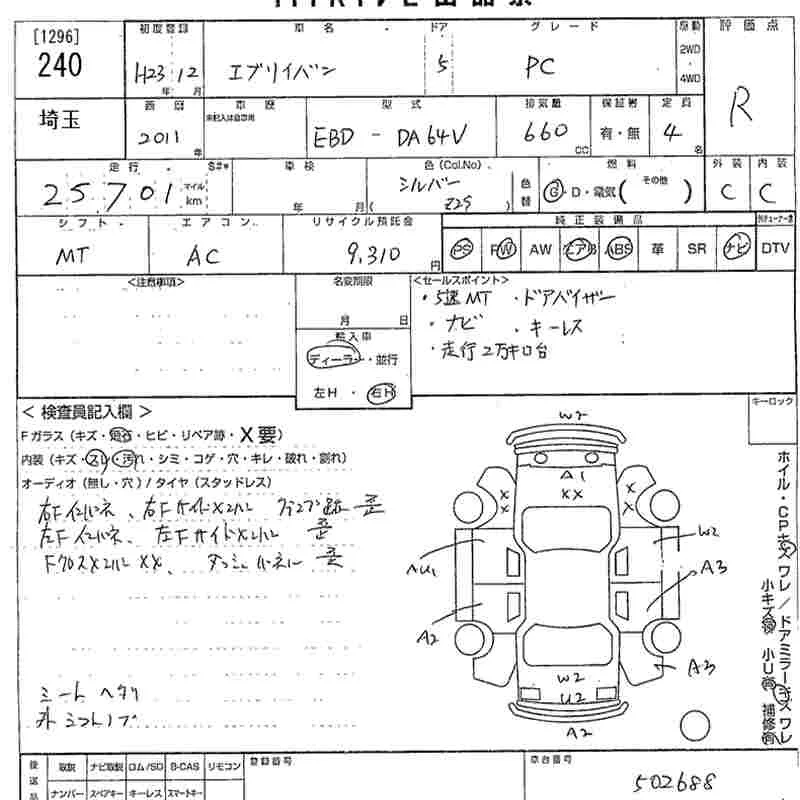 [1296]
240
埼玉
初取登録 車名 ドア グレード 駆動 評価点
H23 12 エブリイバン 5 PC 2WD・4WD R
年 月
西暦 車歴 型式 排気量 保証書 定員
2011 年 未記入は自家用 EBD - DA64V 660 CC 有・無 4 名
走行 S#* 車検 色(Col.No) 燃料 外装 内装
25701 マイル km 年 月 シルバー ( Z2S ) 色替 G・D・電気( その他 ) C C
シフト エアコン リサイクル預託金 純正装備品
MT AC 9,310 円 PS PW AW エアB ABS 革 SR ナビ DTV
<注意事項> 名変期限 <セールスポイント>
月 日
・5速MT ・ドアバイザー
・ナビ ・キーレス
・走行2万キロ台
輸入車
ディーラー・並行
左H・右H
キーロック
<検査員記入欄>
Fガラス(キズ・飛石・ヒビ・リペア跡・X要)
内装(キズ・スレ・汚れ・シミ・コゲ・穴・キレ・破れ・割れ)
オーディオ(無し・穴)/タイヤ(スタッドレス)
右Fインパネ、右FサイドメンバX クランプ跡 歪
左Fインパネ、左FサイドメンバX 歪
FクロスメンバXX、ダッシュパネル 歪
シート ヘタリ
外 シフトノブ
W2
A1
XX
X
X
X
X
W2
AU1
A3
A2
A3
W2
U2
A2
ホイル・CPキズ ワレ/ドアミラーキズ ワレ
小キズ有 小U有 補修有
後送品 取説 ナビ取説 ロム/SD B-CAS リモコン 登録番号 車台番号
ナンバー スペアキー キーレス スマートキー 502688